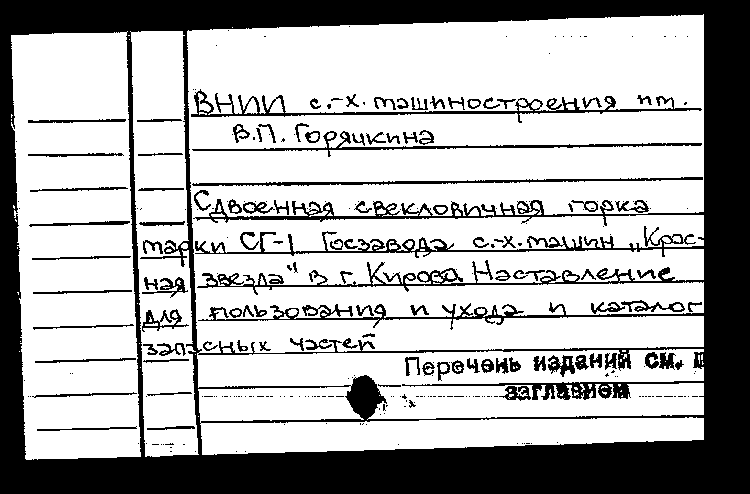 ВНИИ с.-х. машиностроения им.
В.П. Горячкина
Сдвоенная свекловичная горка
марки СГ-1 Госзавода с.-х. машин „Крас-
ная звезда" в г. Кирова. Наставление
для пользования и ухода и каталог
запасных частей
Перечень изданий см. п
заглавием